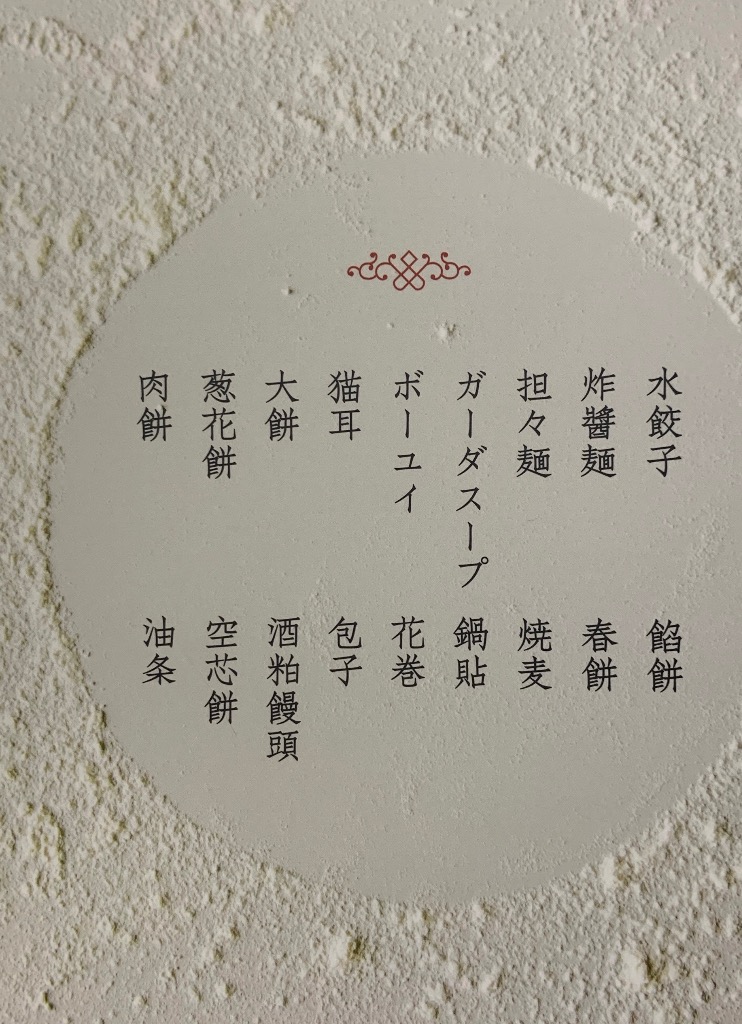 水餃子
炸醬麺
担々麺
ガーダスープ
ボーユイ
猫耳
大餅
葱花餅
肉餅
餡餅
春餅
焼麦
鍋貼
花巻
包子
酒粕饅頭
空芯餅
油条